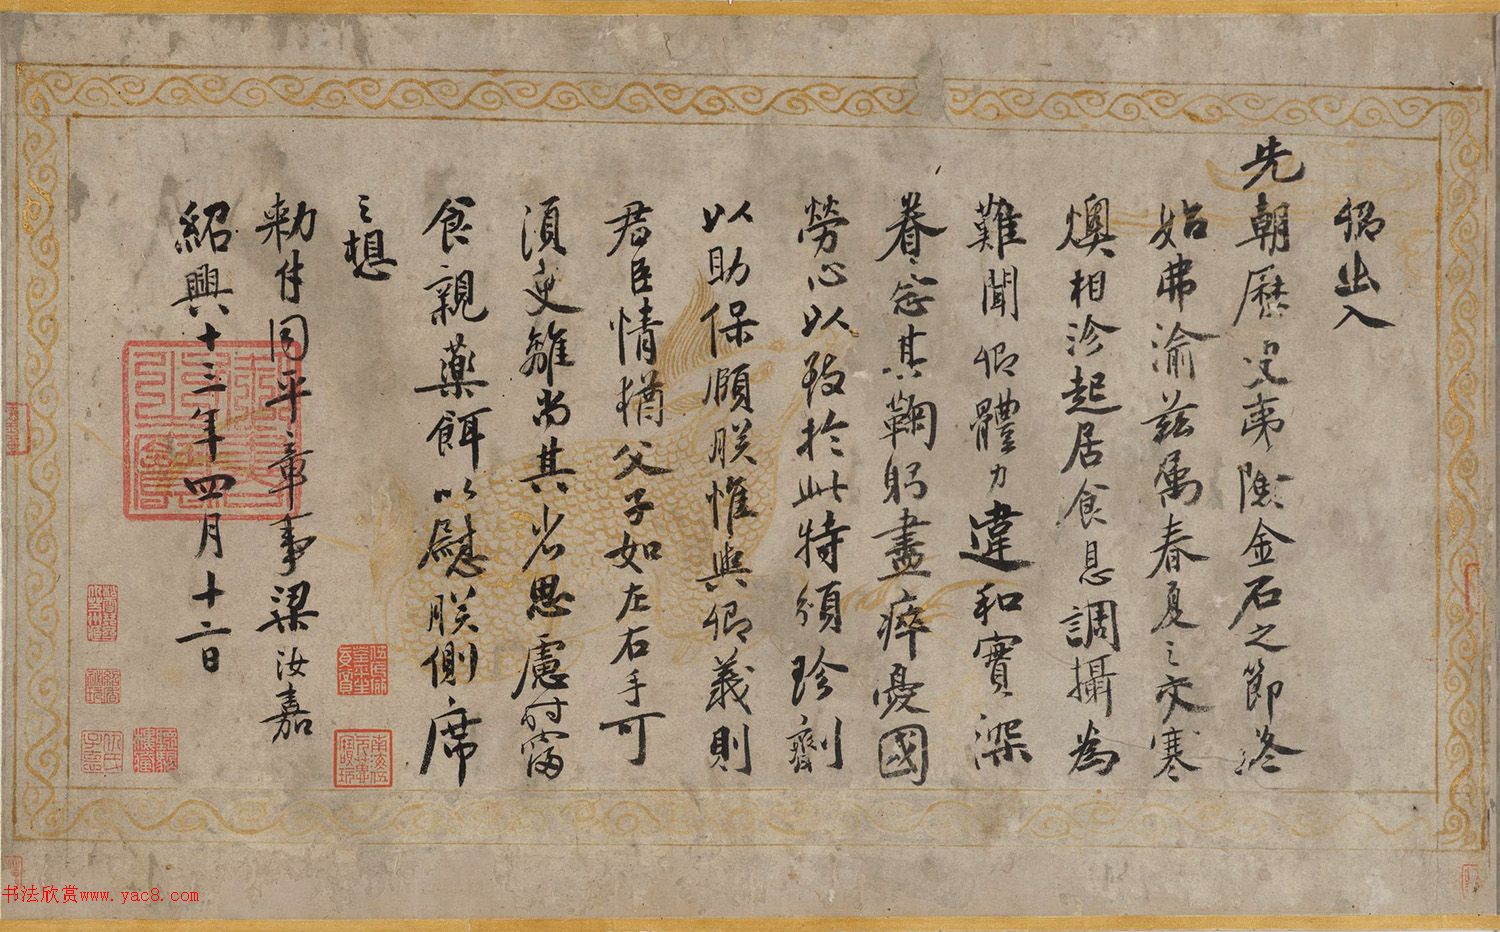 卿出入
先朝歷事夷險金石之節終
始弗渝茲屬春夏之交寒
燠相沴起居食息調攝為
難聞卿體力違和實深
眷念其鞠躬盡瘁憂國
勞心以致於此特頒珍劑
以助保頤朕惟與卿義則
君臣情猶父子如左右手可
須臾離尚其省思慮時寤
食親藥餌以慰朕側席
之想
敕付同平章事梁汝嘉
紹興十三年四月十二日
书法欣赏www.yac8.com